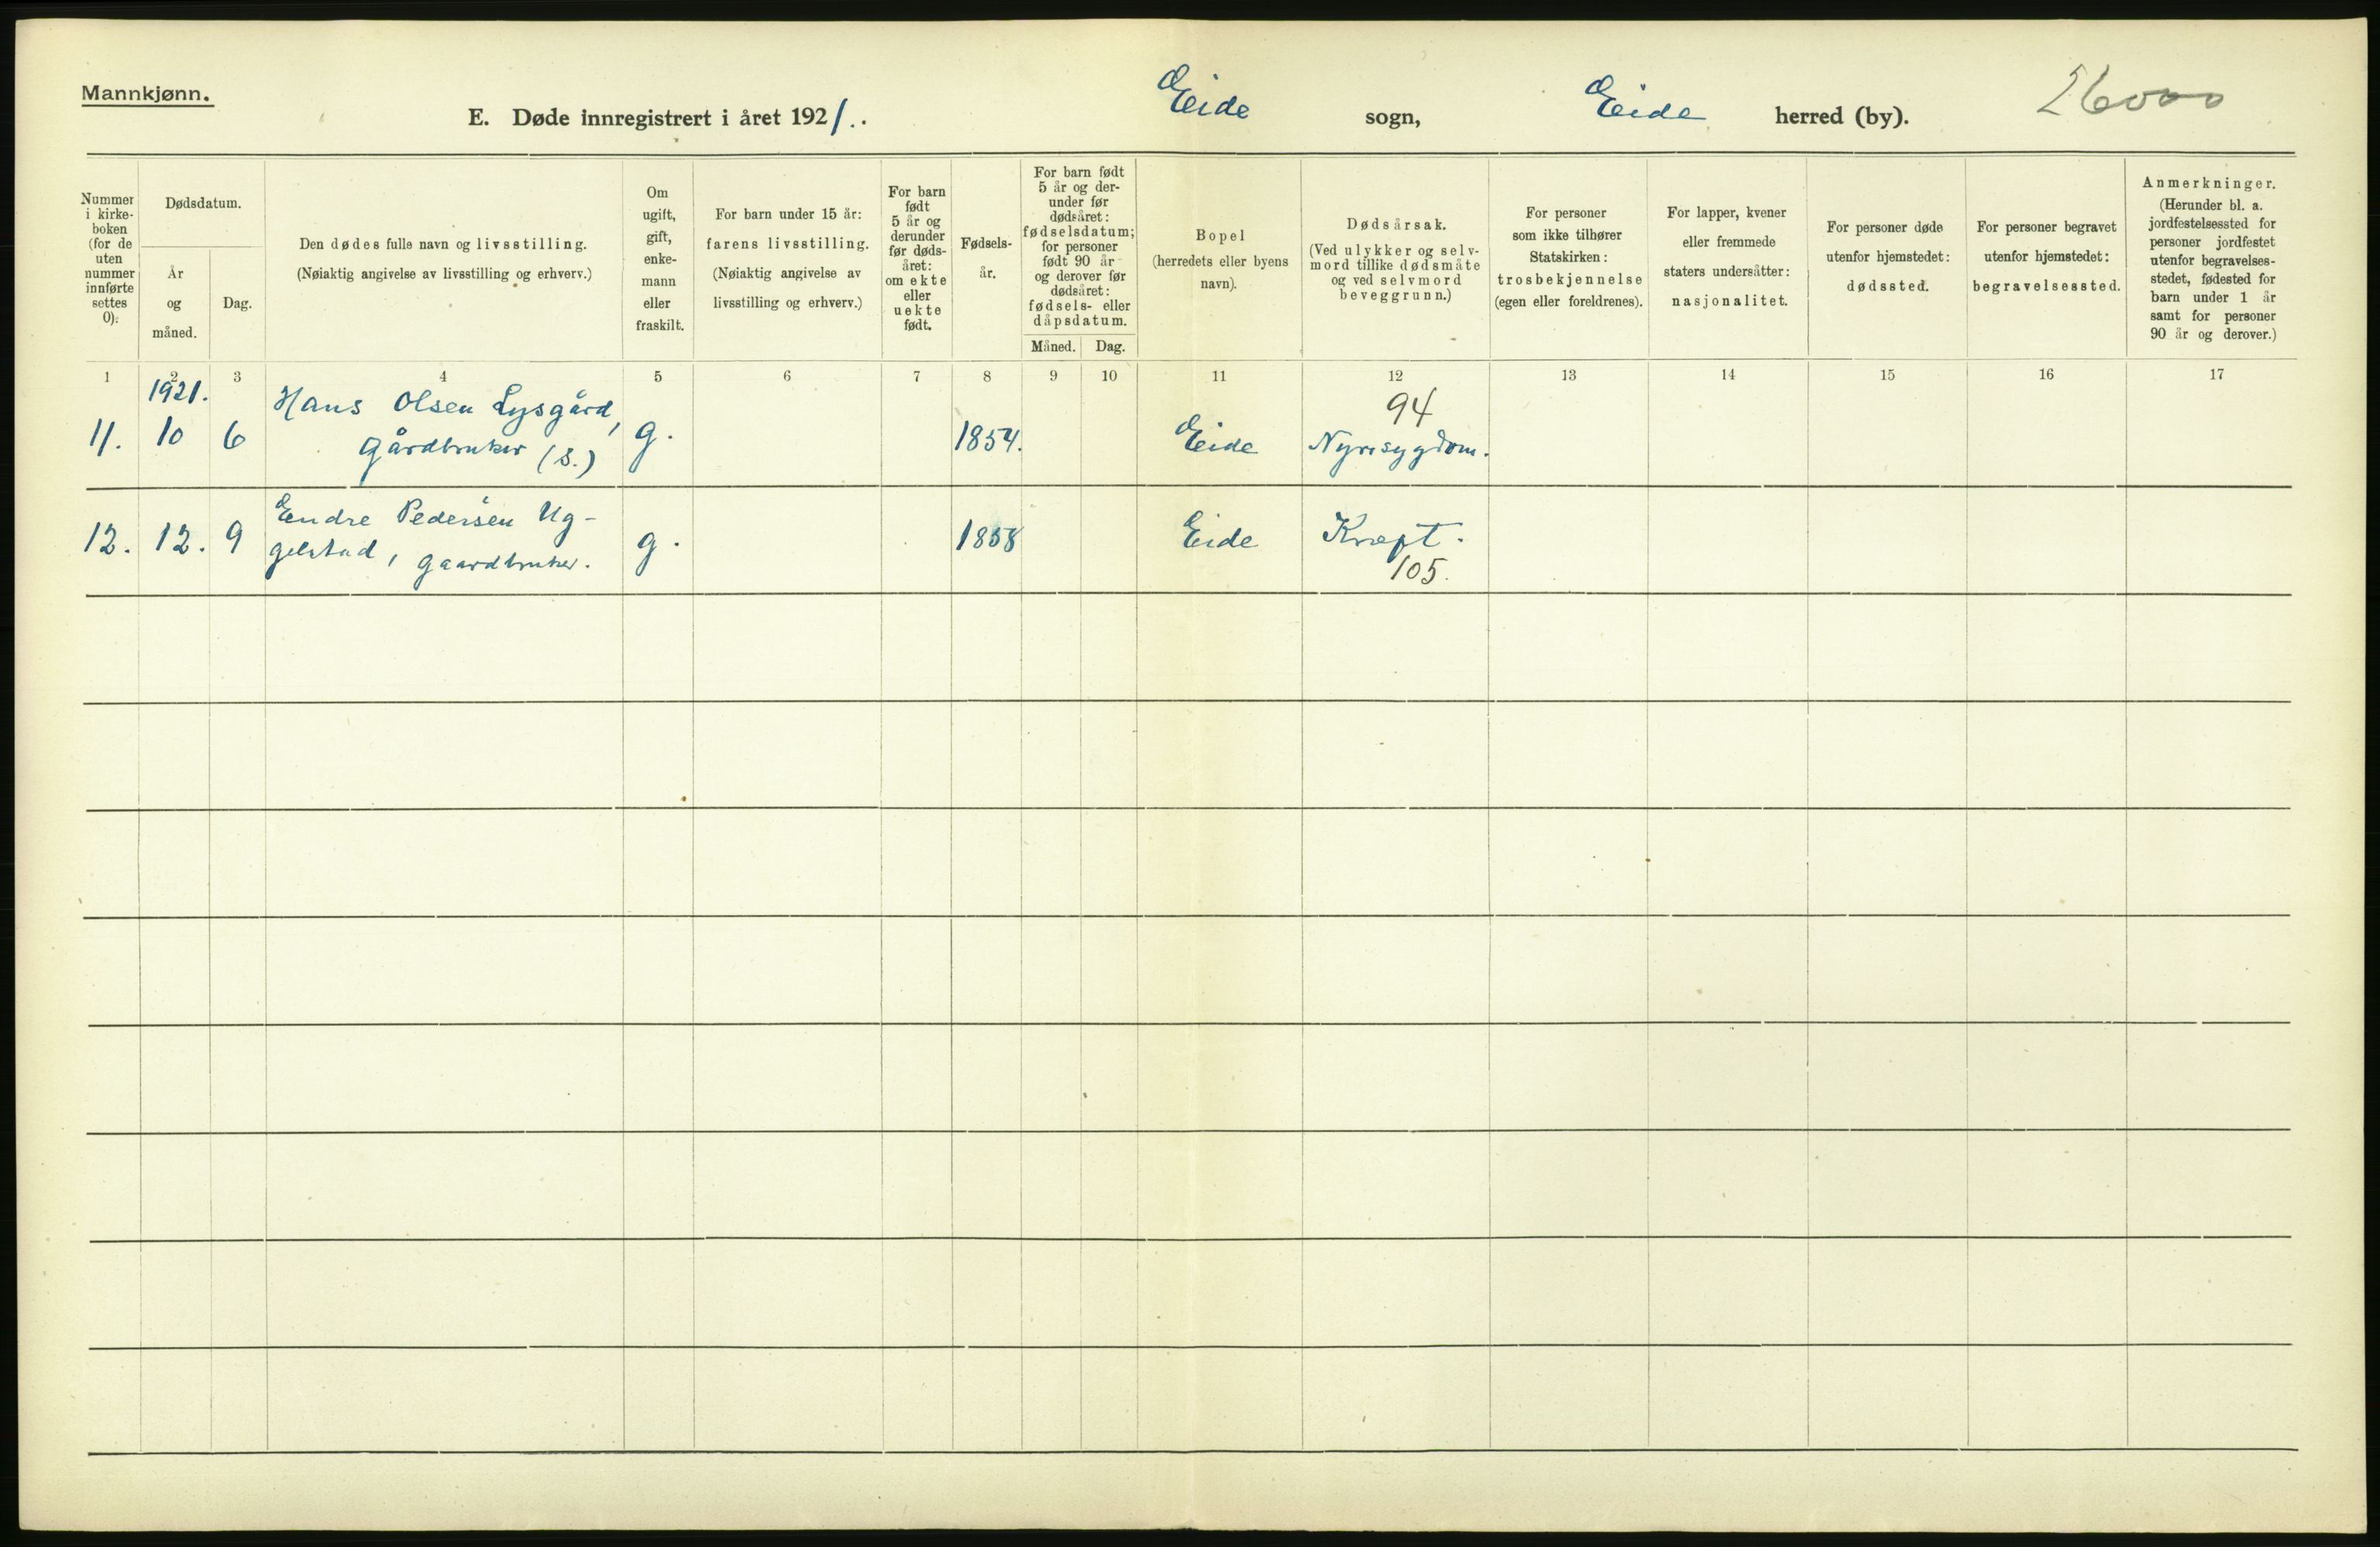 Mannkjønn.
E. Døde innregistrert i året 1921.. Eide sogn, Eide herred (by).
Nummer i kirke- boken (for de uten nummer innførte settes 0).
Dødsdatum.
År og måned.
Dag.
Den dødes fulle navn og livsstilling.
(Nøiaktig angivelse av livsstilling og erhverv.)
Om ugift, gift, enke- mann eller fraskilt.
For barn under 15 år:
farens livsstilling.
(Nøiaktig angivelse av
livsstilling og erhverv.)
For barn født 5 år og derunder før døds- året: om ekte eller uekte født.
Fødsels- år.
For barn født 5 år og der- under før dødsåret: fødselsdatum; for personer født 90 år og derover før dødsåret: fødsels- eller dåpsdatum.
Måned. Dag.
Bopel
(herredets eller byens
navn).
Dødsårsak.
(Ved ulykker og selv-
mord tillike dødsmåte
og ved selvmord
beveggrunn.)
For personer
som ikke tilhører
Statskirken:
trosbekjennelse
(egen eller foreldrenes).
For lapper, kvener
eller fremmede
staters undersåtter:
nasjonalitet.
For personer døde
utenfor hjemstedet:
dødssted.
For personer begravet
utenfor hjemstedet:
begravelsessted.
Anmerkninger.
(Herunder bl. a.
jordfestelsessted for
personer jordfestet
utenfor begravelses-
stedet, fødested for
barn under 1 år
samt for personer
90 år og derover.)
1 2 3 4 5 6 7 8 9 10 11 12 13 14 15 16 17
1921.
11. 10 6 Hans Olsen Lysgård,
gårdbruker (s.) g. 1854. Eide 94
Nyresygdom.
12. 12. 9 Endre Pedersen Ug-
gelstad, gaardbruker. g. 1858 Eide Kræft.
105.